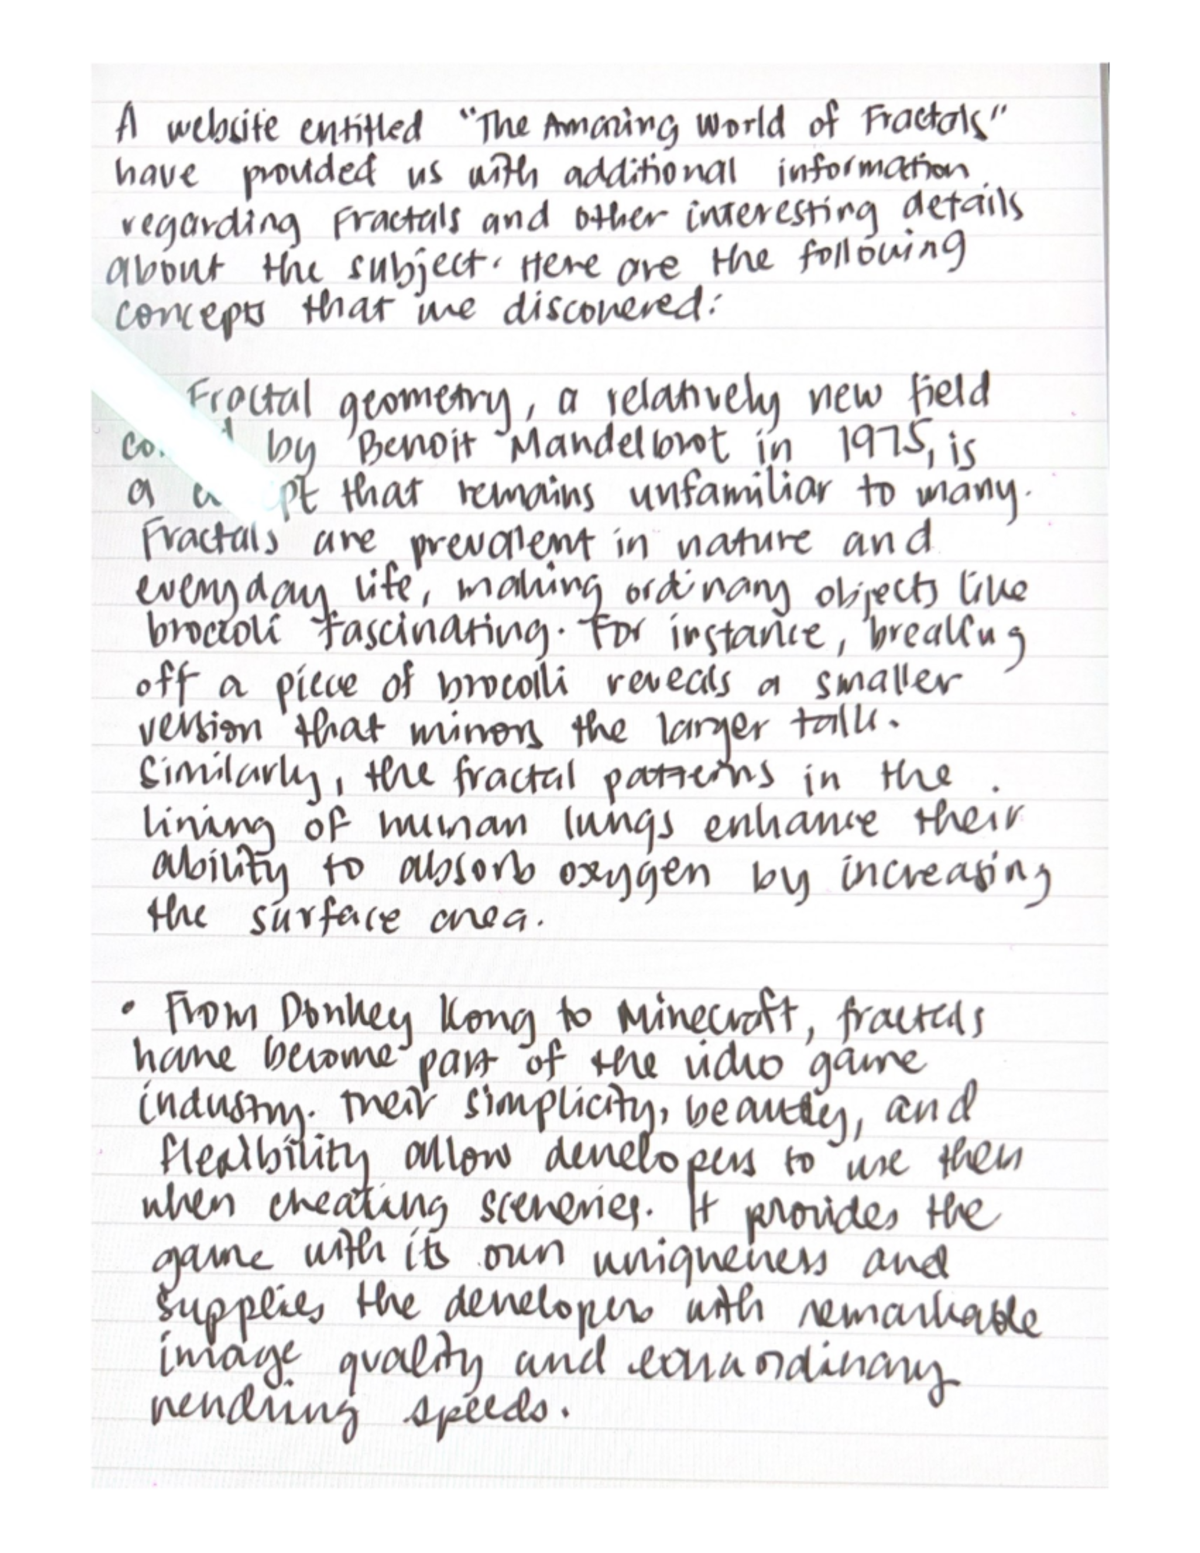 A website entitled "The Amazing World of Fractals"
have provided us with additional information
regarding Fractals and other interesting details
about the subject. Here are the following
concepts that we discovered:
Fractal geometry, a relatively new field
by Benoit Mandelbrot in 1975, is
a that remains unfamiliar to many.
Fractals are prevalent in nature and
everyday life, making ordinary objects like
broccoli fascinating. For instance, breaking
off a piece of brocolli reveals a smaller
version that mirrors the larger
Similarly, the fractal patterns in the
lining of human lungs enhance their
ability to absorb oxygen by increasing
the surface area.
• From Donkey Kong to Minecraft, fractals
have become part of the video game
industry. Their simplicity, beauty, and
flexibility allow developers to use them
when creating sceneries. It provides the
game with its own uniqueness and
supplies the developers with remarkable
image quality and extraordinary
rendring speeds.